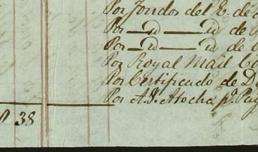 Por fondos del E. de
Por — D — D — de
Por — D — D — de
Por Royal Mail
Por Certificado de D
Por A. J. Atocha p.
38